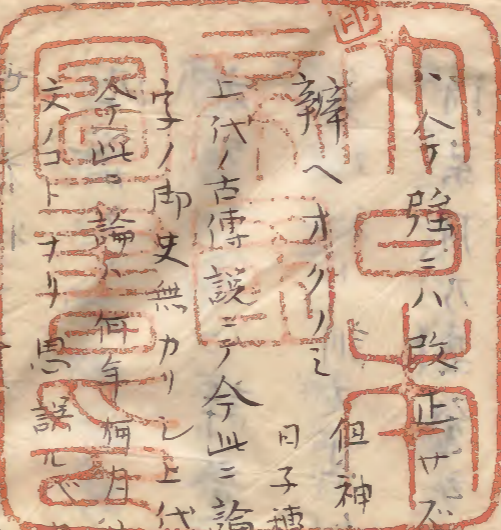 ハ今強ニハ改正サズ
辨ヘオクノミ
但神
日子穂
上代ノ古傳説ニテ今此ニ論
字ノ御史無カリシ上代
今此ニ論ハ何年何月
文ノコトナリ思誤ルベ